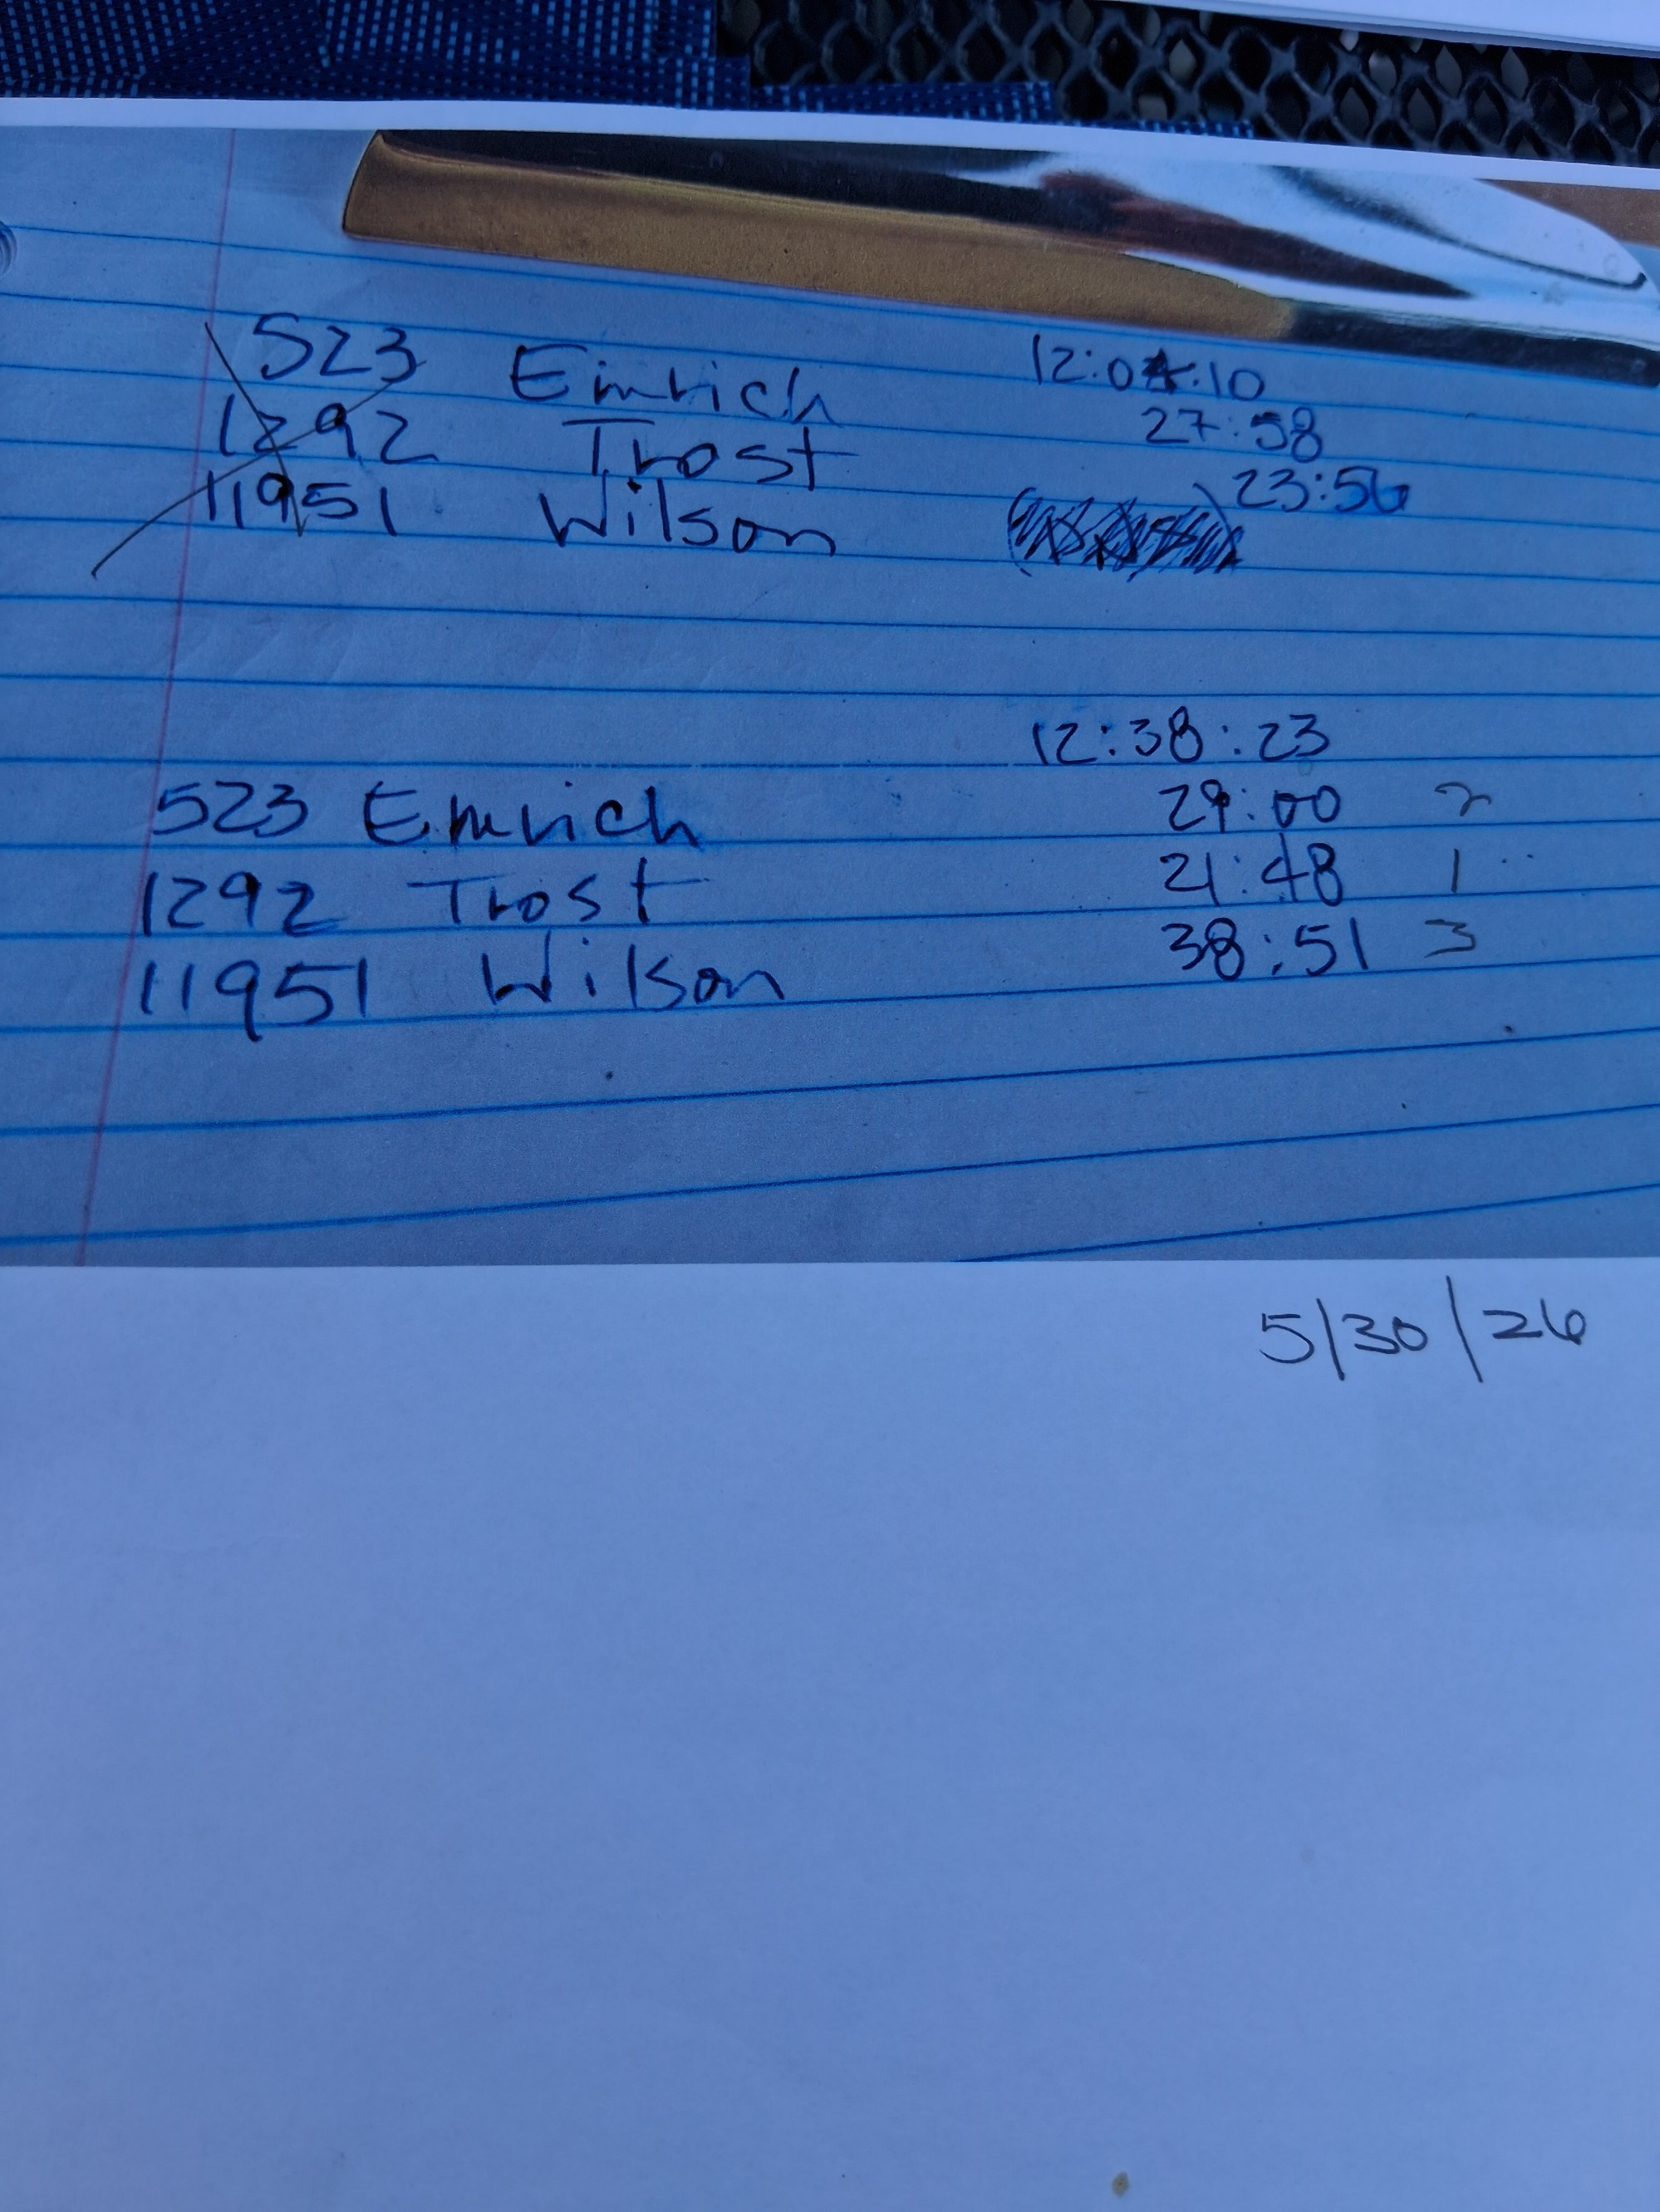 523 Emrich 12:04:10
1292 Trost 27:58
11951 Wilson 23:56
12:38:23
523 Emrich 29:00 2
1292 Trost 21:48 1
11951 Wilson 38:51 3
5/30/26